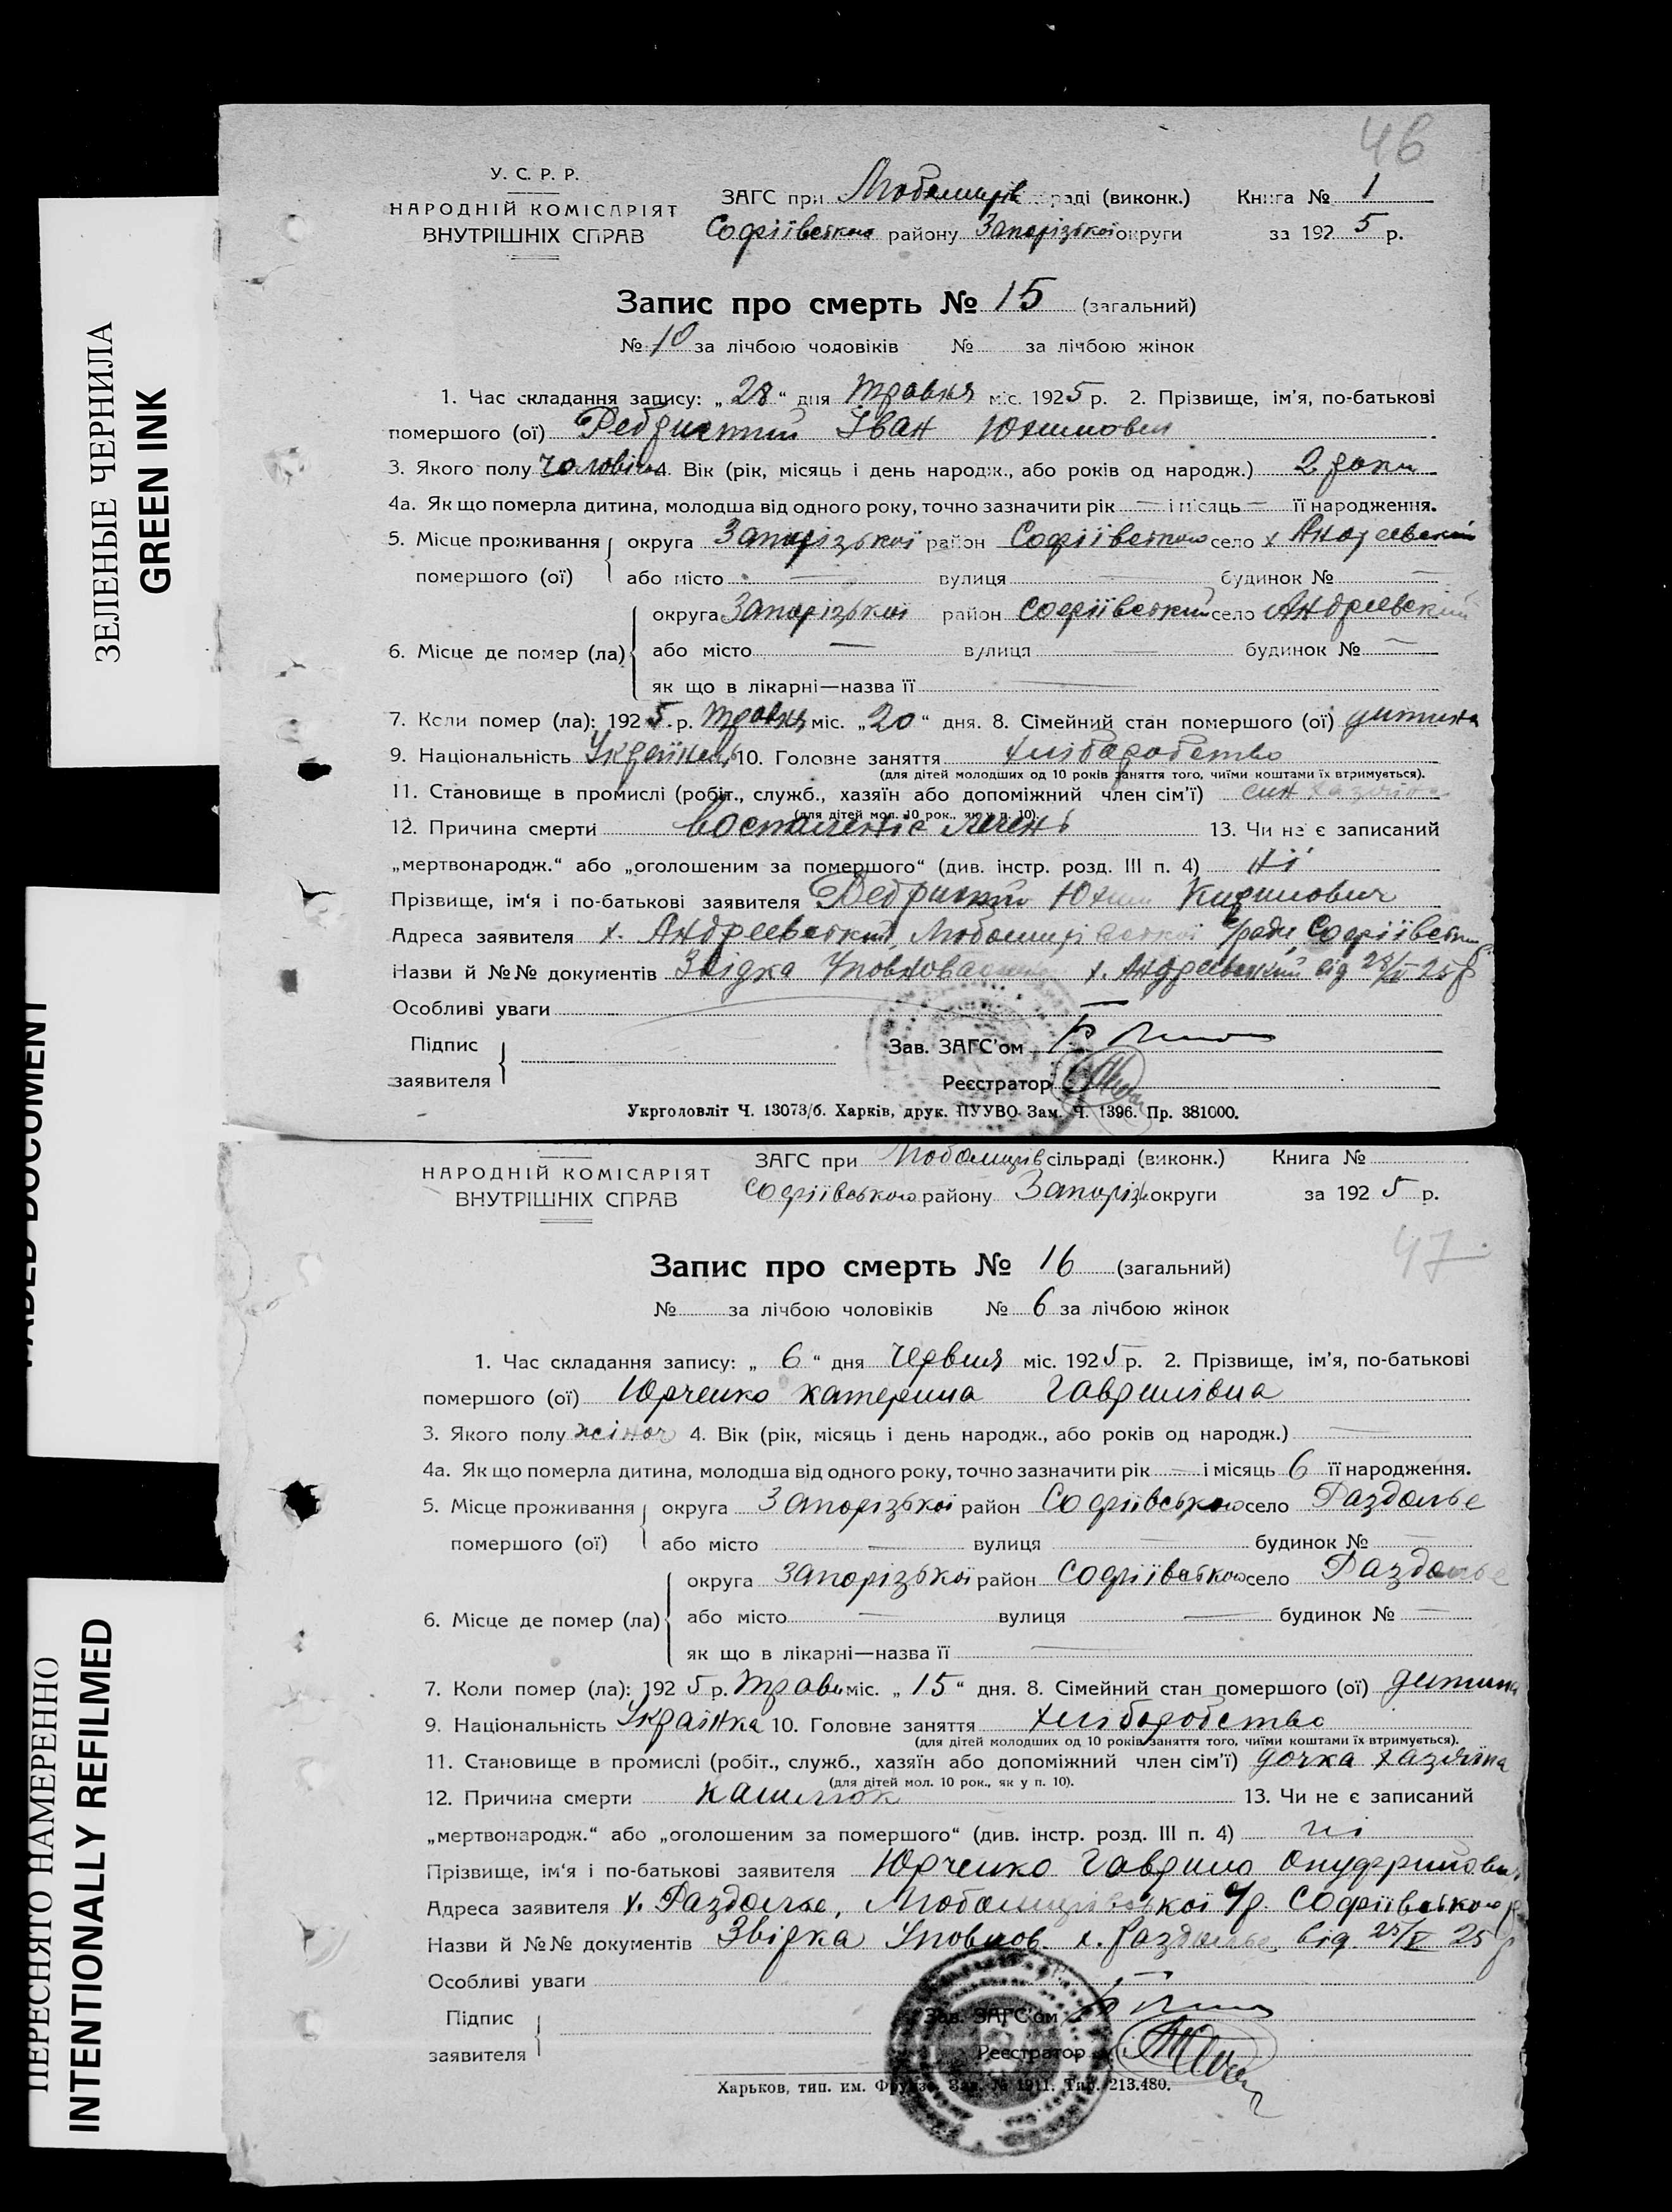 46
У. С. Р. Р.
НАРОДНІЙ КОМІСАРІЯТ
ВНУТРІШНІХ СПРАВ
ЗАГС при Любомирів раді (виконк.)
Софіївського району Запорізької округи
Книга № 1
за 1925 р.
Запис про смерть № 15 (загальний)
№ 10 за лічбою чоловіків № за лічбою жінок
1. Час складання запису: „28“ дня травня міс. 1925 р. 2. Прізвище, ім’я, по-батькові
помершого (ої) Іван Юхимович
3. Якого полу чоловіч 4. Вік (рік, місяць і день народж., або років од народж.) 2 роки
4а. Як що померла дитина, молодша від одного року, точно зазначити рік — і місяць — її народження.
5. Місце проживання округа Запорізької район Софіївського село х Андреевский
помершого (ої) або місто — вулиця — будинок № —
округа Запорізької район Софіївський село Андреевский
6. Місце де помер (ла) або місто — вулиця — будинок № —
як що в лікарні—назва її —
7. Коли помер (ла): 1925 р. травня міс. „20“ дня. 8. Сімейний стан помершого (ої) дитина
9. Національність Українець 10. Головне заняття хліборобство
(для дітей молодших од 10 років заняття того, чиїми коштами їх втримується).
11. Становище в промислі (робіт., служб., хазяїн або допоміжний член сім’ї) син хазяїна
(для дітей мол. 10 рок., як у п. 10).
12. Причина смерти 13. Чи не є записаний
„мертвонародж.“ або „оголошеним за помершого“ (див. інстр. розд. III п. 4) ні
Прізвище, ім’я і по-батькові заявителя Юхим Кирилович
Адреса заявителя х. Андреевский, с/ради, Софіївськ
Назви й №№ документів Звідка Уповновад х. Андреевский від 28/V 25 р
Особливі уваги
Підпис
заявителя
Зав. ЗАГС’ом
Реєстратор
Укрголовліт Ч. 13073/б. Харків, друк. ПУУВО. Зам. Ч. 1396. Пр. 381000.
НАРОДНІЙ КОМІСАРІЯТ
ВНУТРІШНІХ СПРАВ
ЗАГС при Любомирів сільраді (виконк.)
Софіївського району Запоріз округи
Книга №
за 1925 р.
47
Запис про смерть № 16 (загальний)
№ за лічбою чоловіків № 6 за лічбою жінок
1. Час складання запису: „ 6 “ дня червня міс. 1925 р. 2. Прізвище, ім’я, по-батькові
помершого (ої) Юрченко Катерина Гаврилівна
3. Якого полу жіноч 4. Вік (рік, місяць і день народж., або років од народж.) —
4а. Як що померла дитина, молодша від одного року, точно зазначити рік — і місяць 6 її народження.
5. Місце проживання округа Запорізької район Софіївського село Раздолье
помершого (ої) або місто — вулиця — будинок № —
округа Запорізької район Софіївського село Раздолье
6. Місце де помер (ла) або місто — вулиця — будинок № —
як що в лікарні—назва її —
7. Коли помер (ла): 1925 р. травн міс. „ 15 “ дня. 8. Сімейний стан помершого (ої) дитина
9. Національність Українка 10. Головне заняття хліборобство
(для дітей молодших од 10 років заняття того, чиїми коштами їх втримується).
11. Становище в промислі (робіт., служб., хазяїн або допоміжний член сім’ї) дочка хазяїна
(для дітей мол. 10 рок., як у п. 10).
12. Причина смерти кашлюк 13. Чи не є записаний
„мертвонародж.“ або „оголошеним за помершого“ (див. інстр. розд. III п. 4) ні
Прізвище, ім’я і по-батькові заявителя Юрченко Гаврило
Адреса заявителя х. Раздолье, с/р. Софіївського р
Назви й №№ документів Звідка Уповнов. х. Раздолье від 25/V 25 р
Особливі уваги
Підпис
заявителя
Зав. ЗАГС’ом
Реєстратор
Харьков, тип. им. Фрунзе. Зак. № 1911. Тир. 213.480.
ЗЕЛЕНЫЕ ЧЕРНИЛА
GREEN INK
DOCUMENT
ПЕРЕСНЯТО НАМЕРЕННО
INTENTIONALLY REFILMED